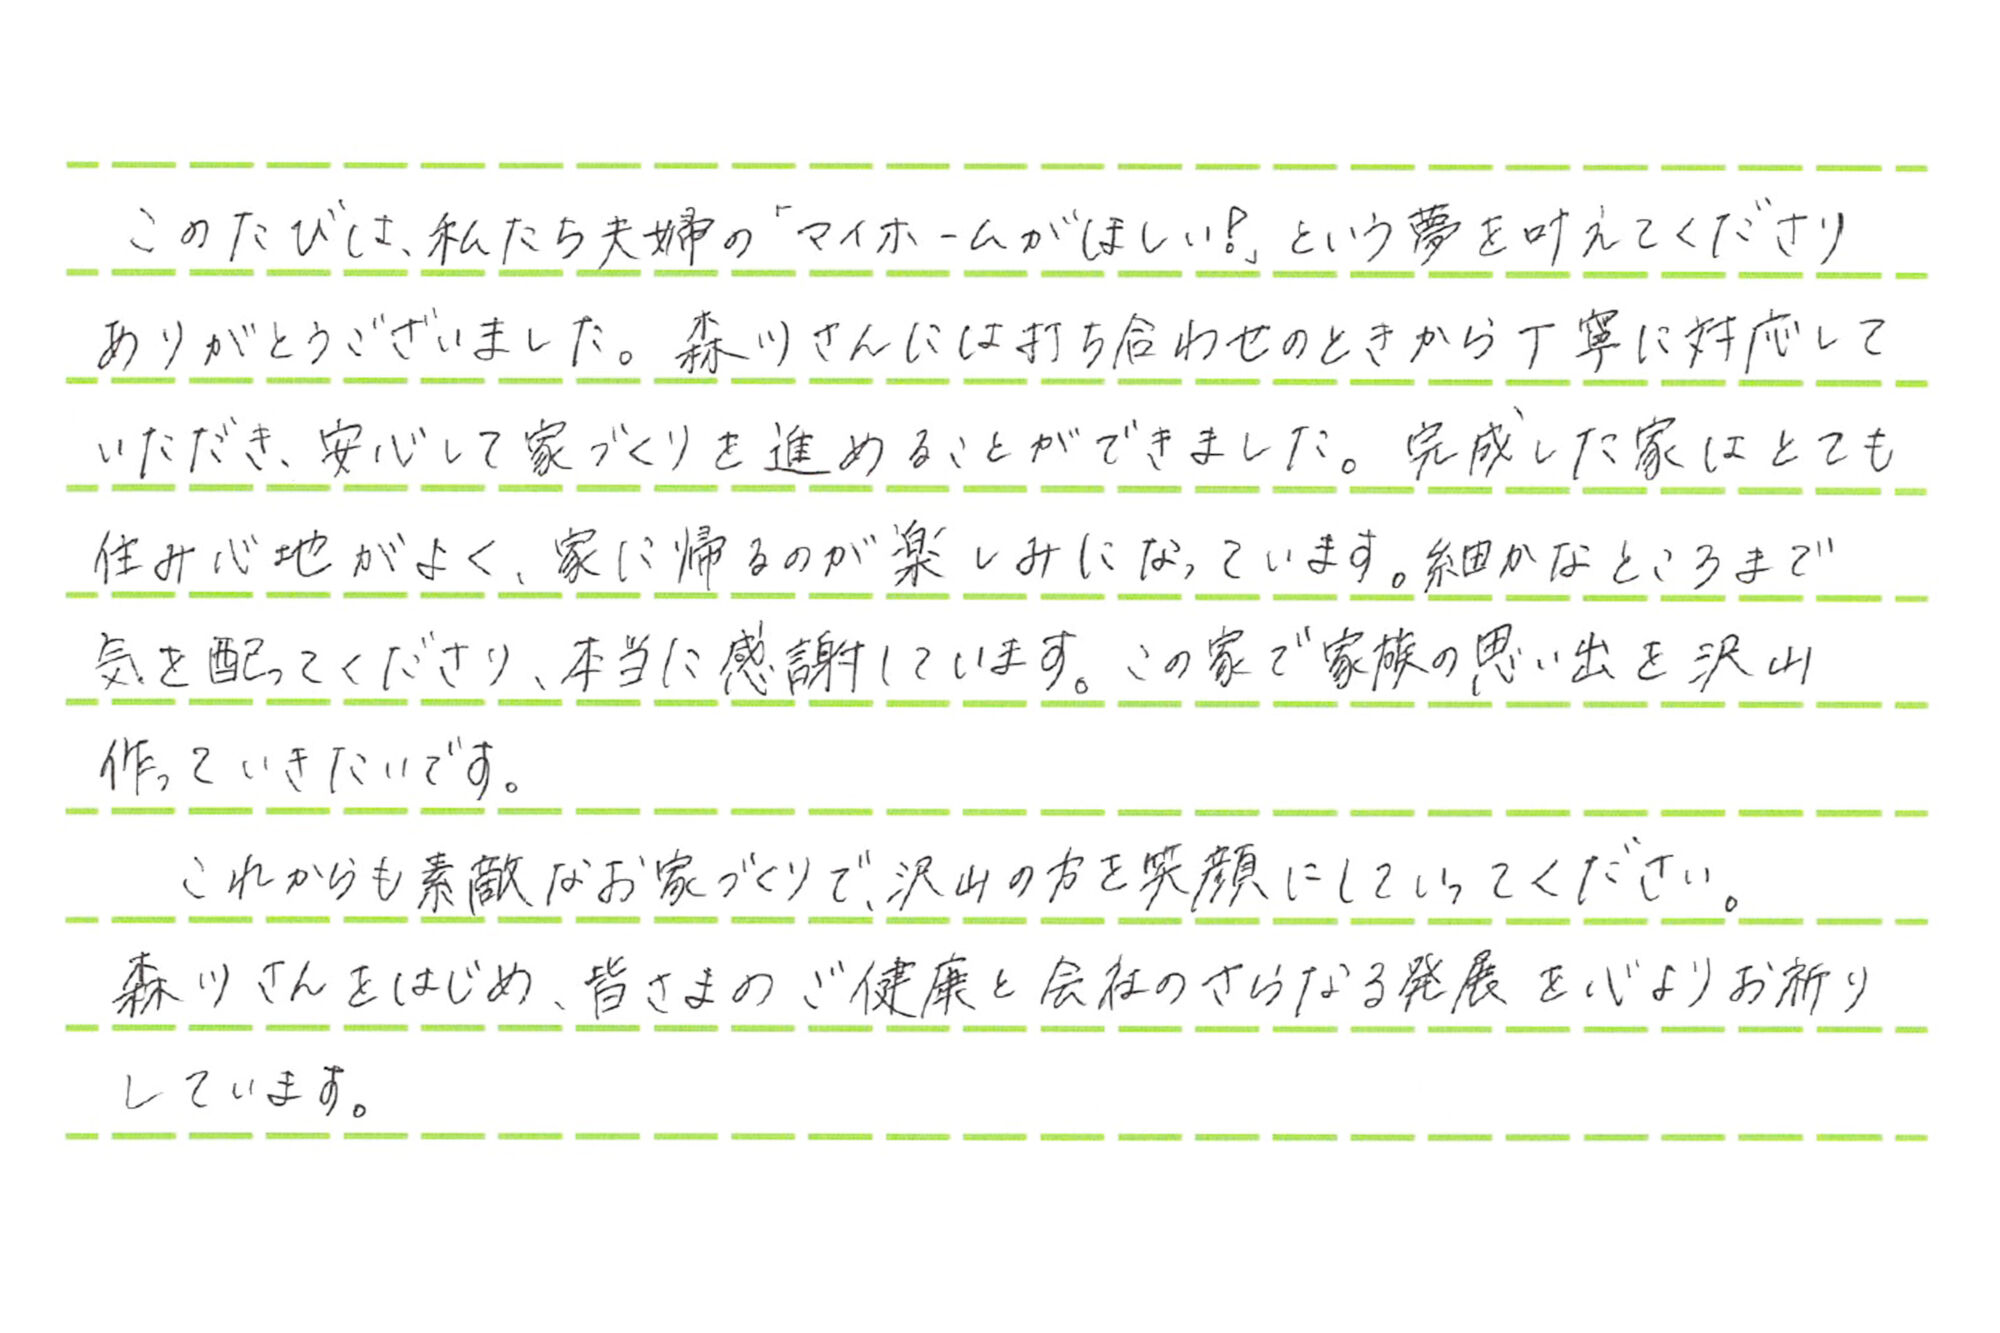 このたびは、私たち夫婦の「マイホームがほしい!」という夢を叶えてくださり
ありがとうございました。森川さんには打ち合わせのときから丁寧に対応して
いただき、安心して家づくりを進めることができました。完成した家はとても
住み心地がよく、家に帰るのが楽しみになっています。細かなところまで
気を配ってくださり、本当に感謝しています。この家で家族の思い出を沢山
作っていきたいです。
これからも素敵なお家づくりで、沢山の方を笑顔にしていってください。
森川さんをはじめ、皆さまのご健康と会社のさらなる発展を心よりお祈り
しています。